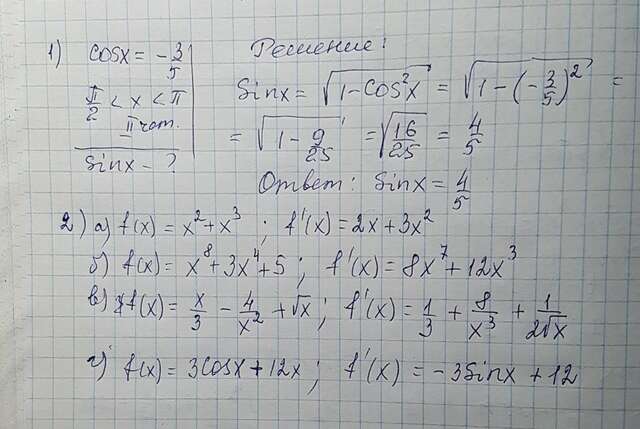 1) cosx = -3/5
π/2 < x < π
II чет.
Sinx - ?
Решение:
Sinx = √(1-cos²x) = √(1-(-3/5)²) =
= √(1-9/25) = √(16/25) = 4/5
Ответ: Sinx = 4/5
2) а) f(x) = x²+x³ ; f'(x) = 2x+3x²
б) f(x) = x⁸+3x⁴+5 ; f'(x) = 8x⁷+12x³
в) f(x) = x/3 - 4/x² + √x ; f'(x) = 1/3 + 8/x³ + 1/2√x
г) f(x) = 3cosx+12x ; f'(x) = -3sinx+12